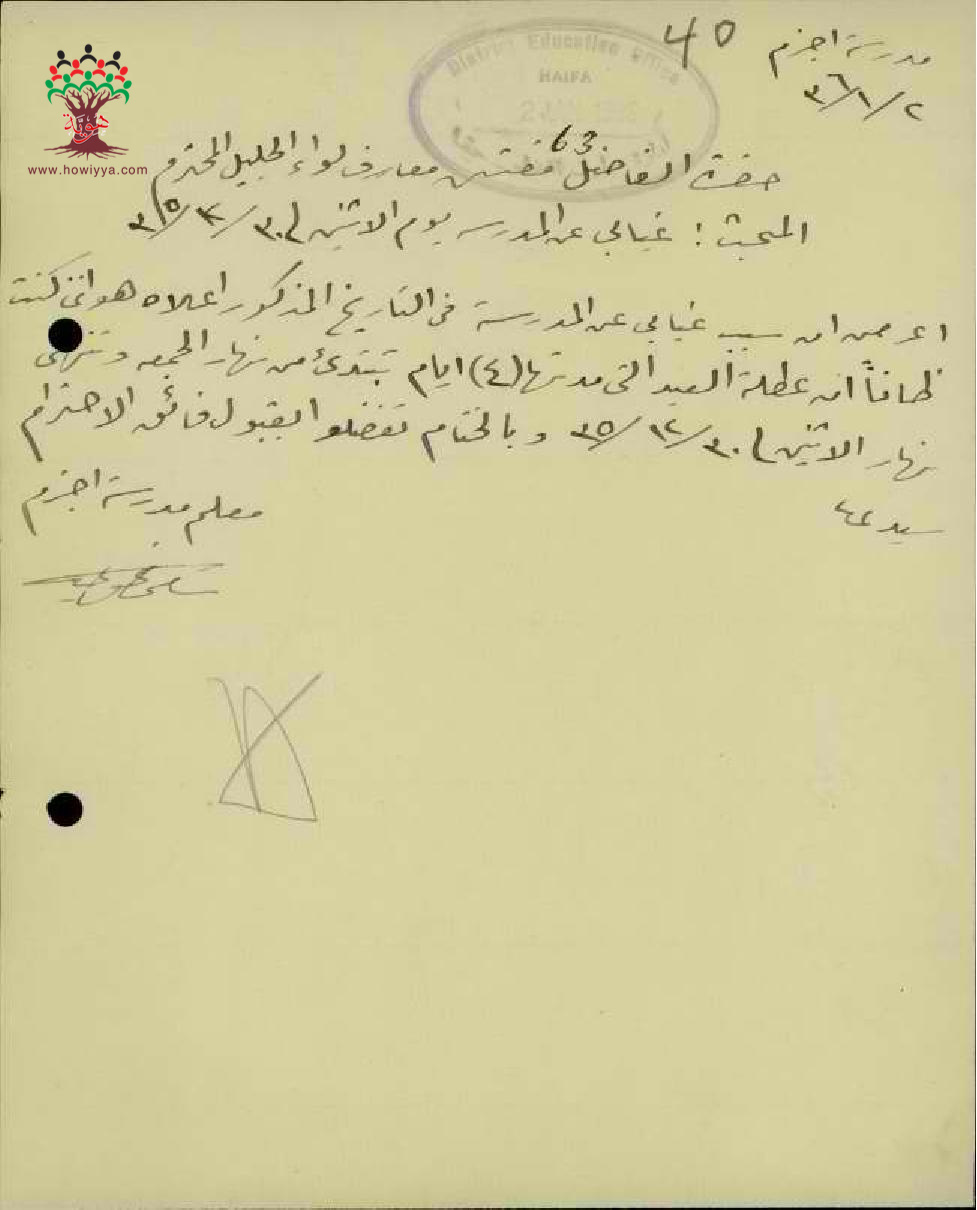 40
مدرسة اجزم
٣٦/١/٢
District Education Office
HAIFA
63
هوية
www.howiyya.com
حضرة الفاضل مفتش معارف لواء الجليل المحترم
المبحث : غيابي عن المدرسه يوم الاثنين ٣٠/١٢/٣٥
اعرض ان سبب غيابي عن المدرسة في التاريخ المذكور اعلاه هو انني كنت
ظاناً ان عطلة العيد التي مدتها (٤) ايام تبتدئ من نهار الجمعه وتنتهي
نهار الاثنين ٣٠/١٢/٣٥ وبالختام تفضلوا بقبول فائق الاحترام
سيدي
معلم مدرسة اجزم